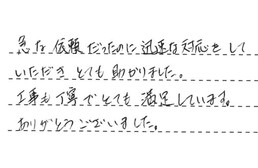 急な依頼だったのに迅速な対応をして
いただきとても助かりました。
工事も丁寧でとても満足しています。
ありがとうございました。